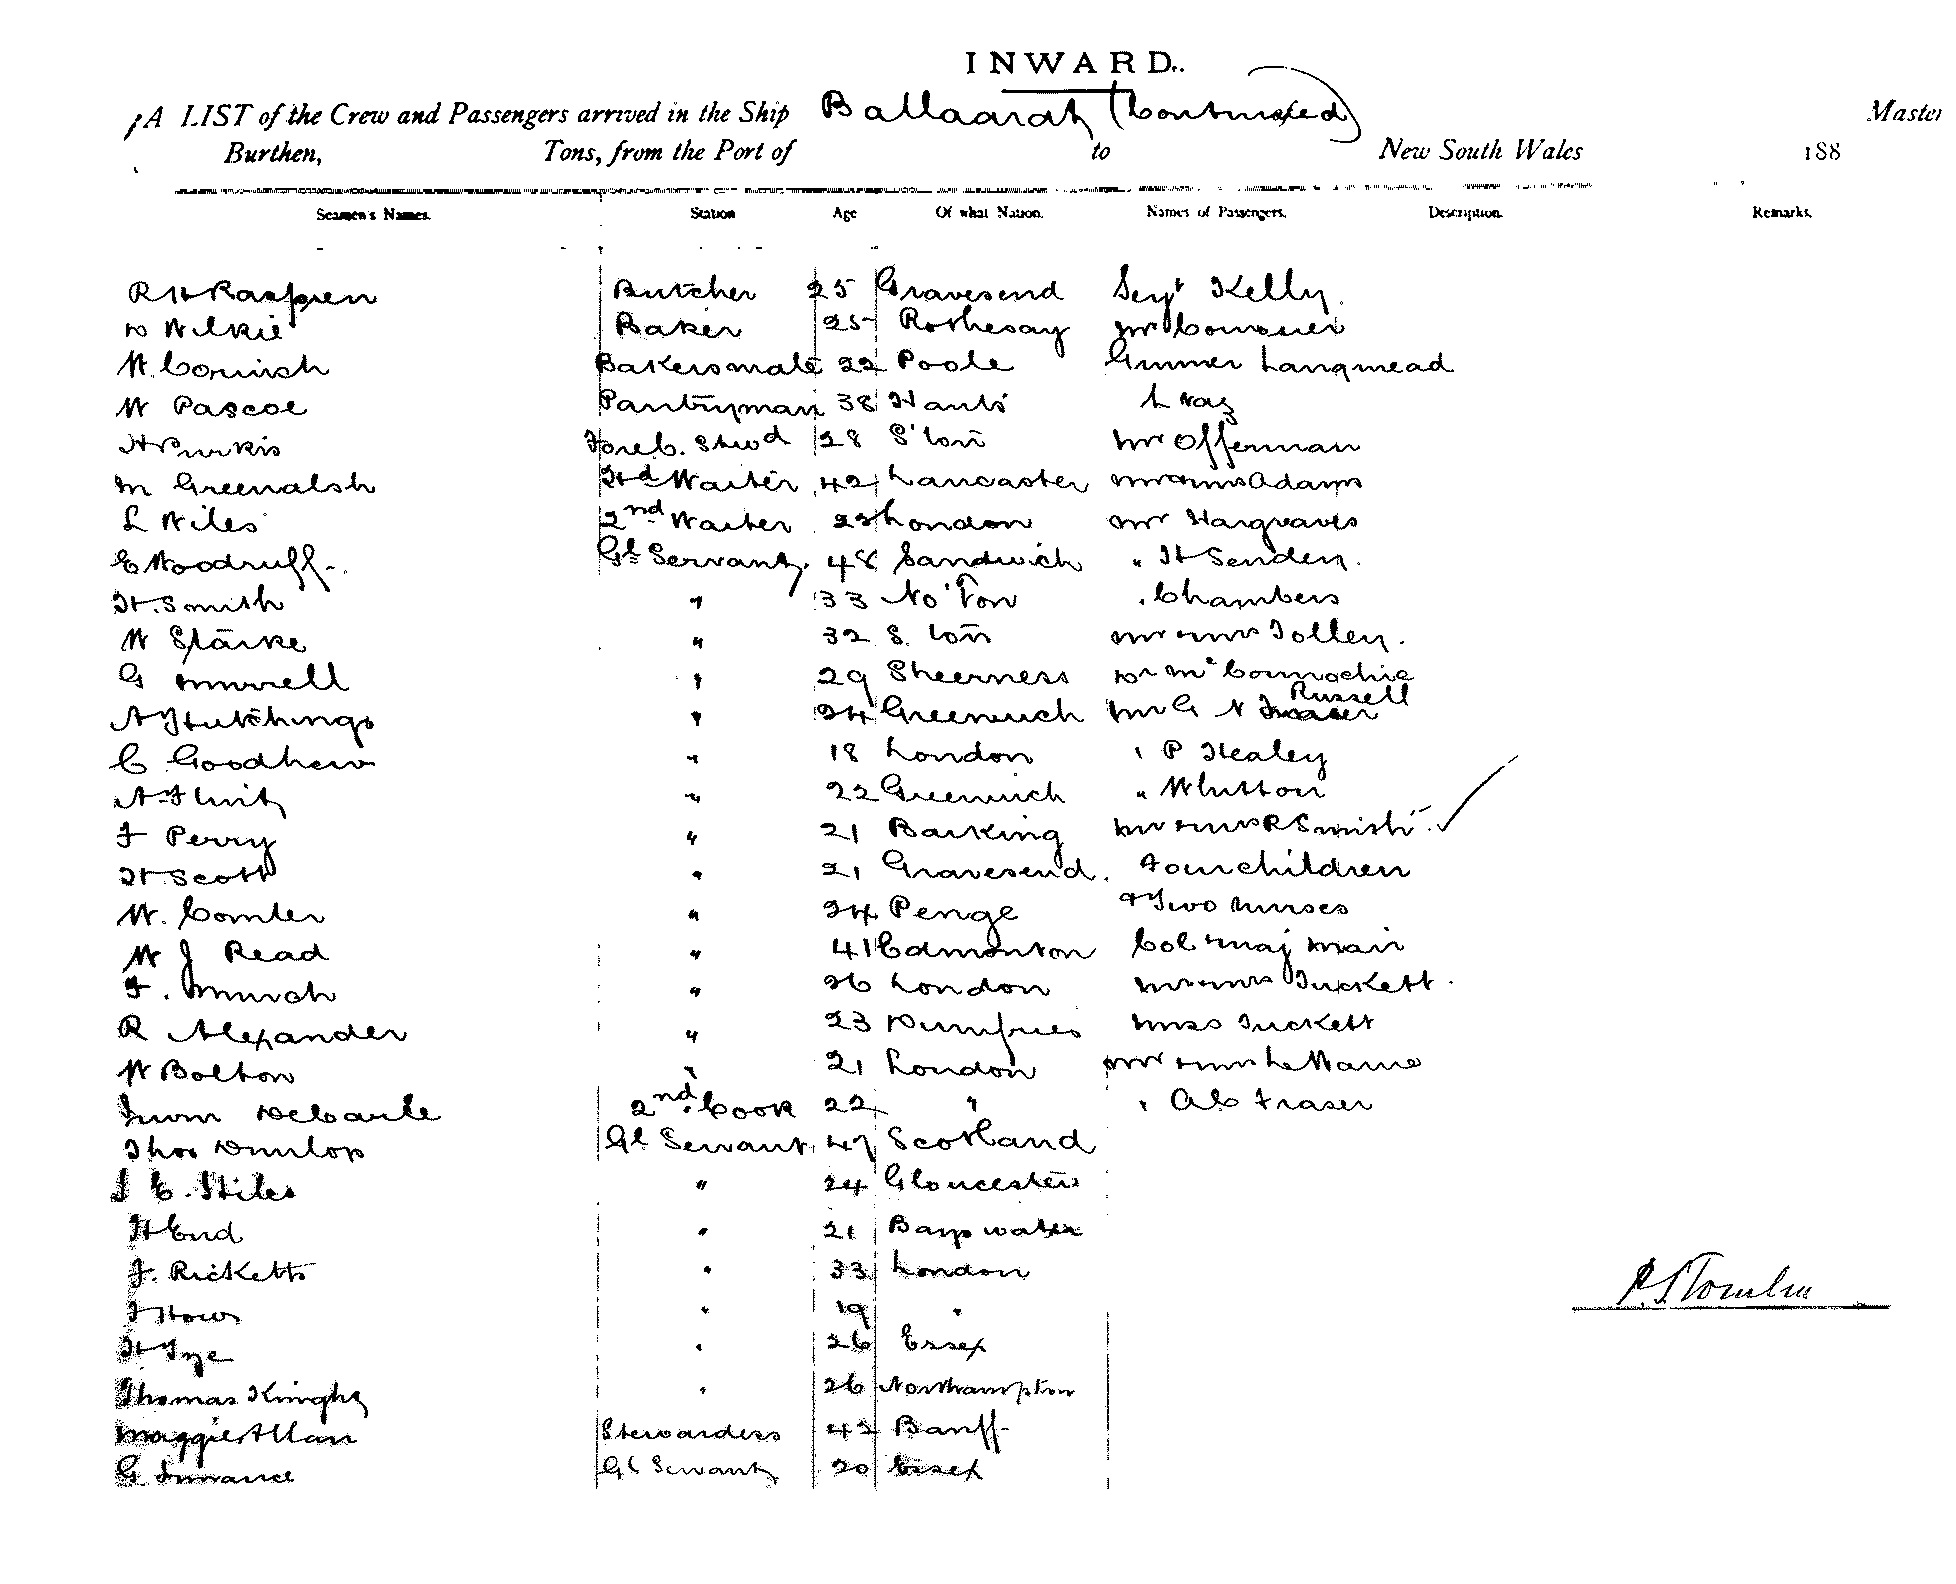 INWARD.
A LIST of the Crew and Passengers arrived in the Ship Ballaarat (Continued) Master
Burthen, Tons, from the Port of to New South Wales 188
Seamen's Names. Station Age Of what Nation. Names of Passengers. Description. Remarks.
R H Raspren Butcher 25 Gravesend Sergt Kelly
D Wilkie Baker 25 Rothesay Mr
W. Cornish Bakersmate 22 Poole Gunner Langmead
W Pascoe Pantryman 38 Hants
H Purkis Forec. Stwd 28 S'ton Mr Offerman
M Greenalsh Hd Waiter 42 Lancaster Mr & Mrs Adams
L Wiles 2nd Waiter 23 London Mr Hargreaves
E Woodruff Gl Servant 48 Sandwich " H Senden
H. Smith " 33 No'ton " Chambers
W Starke " 32 S. ton Mr & Mrs Tolley.
G Murrell " 29 Sheerness Dr McConnochie
A Hutchings " 24 Greenwich Mr G W Fraser Russell
C Goodhew " 18 London " P Healey
A Flint " 22 Greenwich " Whitton
F Perry " 21 Barking Mr & Mrs R Smith
H Scott " 21 Gravesend. Four children
W. Comler " 24 Penge & Two nurses
W J Read " 41 Edmonton Col & Maj Main
F. Munch " 26 London Mr & Mrs Tuckett.
R Alexander " 23 Dumfries Miss Tuckett
W Bolton " 21 London Mr & Mrs
DeCarle 2nd Cook 22 " " A C Fraser
Thos Dunlop Gl Servant 47 Scotland
J C. Stiles " 24 Gloucester
H End " 21 Bayswater
J. Ricketts " 33 London
J Hows " 19 "
H Tye " 26 Essex
Thomas Knight " 26 Northampton
Maggie Allan Stewardess 42 Banff
G Gl Servant 20 Essex